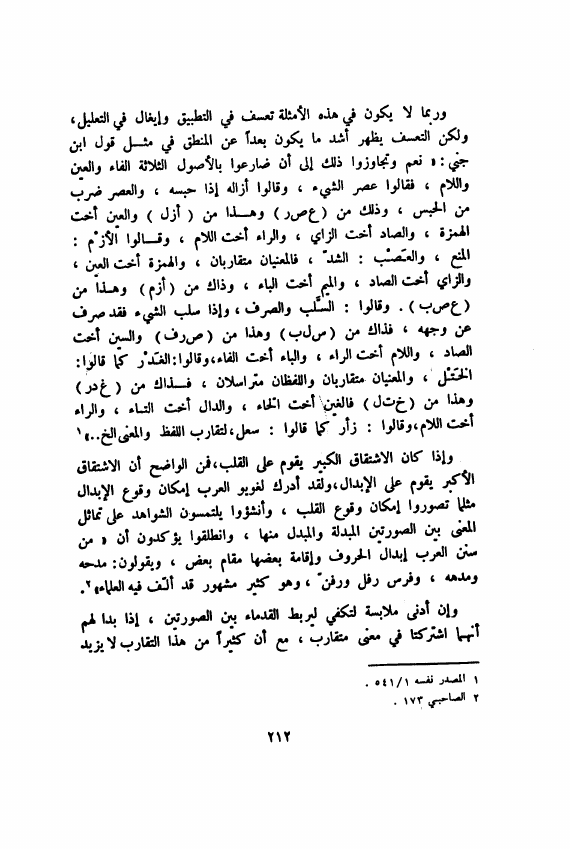 وربما لا يكون في هذه الأمثلة تعسف في التطبيق وإيغال في التعليل،
ولكن التعسف يظهر أشد ما يكون بعداً عن المنطق في مثـل قول ابن
جني: « نعم وتجاوزوا ذلك إلى أن ضارعوا بالأصول الثلاثة الفاء والعين
واللام ، فقالوا عصر الشيء ، وقالوا أزاله إذا حبسه ، والعصر ضرب
من الحبس ، وذلك من ( ع‍ص‍ر ) وهـذا من ( أزل ) والعين أخت
الهمزة ، والصاد أخت الزاي ، والراء أخت اللام ، وقـالوا الأزْم :
المنع ، والعَصْب : الشدّ ، فالمعنيان متقاربان ، والهمزة أخت العين ،
والزاي أخت الصاد ، والميم أخت الباء ، وذاك من ( أزم ) وهـذا من
( ع‍ص‍ب ) . وقالوا : السَّلب والصرف، وإذا سلب الشيء فقد صرف
عن وجهه ، فذاك من ( س‍ل‍ب ) وهذا من ( ص‍رف ) والسين أخت
الصاد ، واللام أخت الراء ، والباء أخت الفاء، وقالوا: الغَدْر كما قالوا:
الختْل ، والمعنيان متقاربان واللفظان متراسلان ، فـذاك من ( غ‍در )
وهذا من ( خ‍ت‍ل ) فالغين أخت الخاء ، والدال أخت التـاء ، والراء
أخت اللام، وقالوا : زأر كما قالوا : سعل، لتقارب اللفظ والمعنى الخ..»١
وإذا كان الاشتقاق الكبير يقوم على القلب، فمن الواضح أن الاشتقاق
الأكبر يقوم على الإبدال، ولقد أدرك لغويو العرب إمكان وقوع الإبدال
مثلما تصوروا إمكان وقوع القلب ، وأنشؤوا يلتمسون الشواهد على تماثل
المعنى بين الصورتين المبدلة والمبدل منها ، وانطلقوا يؤكدون أن « من
سنن العرب إبدال الحروف وإقامة بعضها مقام بعض ، ويقولون: مدحه
ومدهه ، وفرس رفل ورفنّ ، وهو كثير مشهور قد ألّف فيه العلماء»٢.
وإن أدنى ملابسة لتكفي ليربط القدماء بين الصورتين ، إذا بدا لهم
أنهما اشتركتا في معنى متقارب ، مع أن كثيراً من هذا التقارب لا يزيد
١ المصدر نفسه ٥٤١/١ .
٢ الصاحبي ١٧٣ .
٢١٢